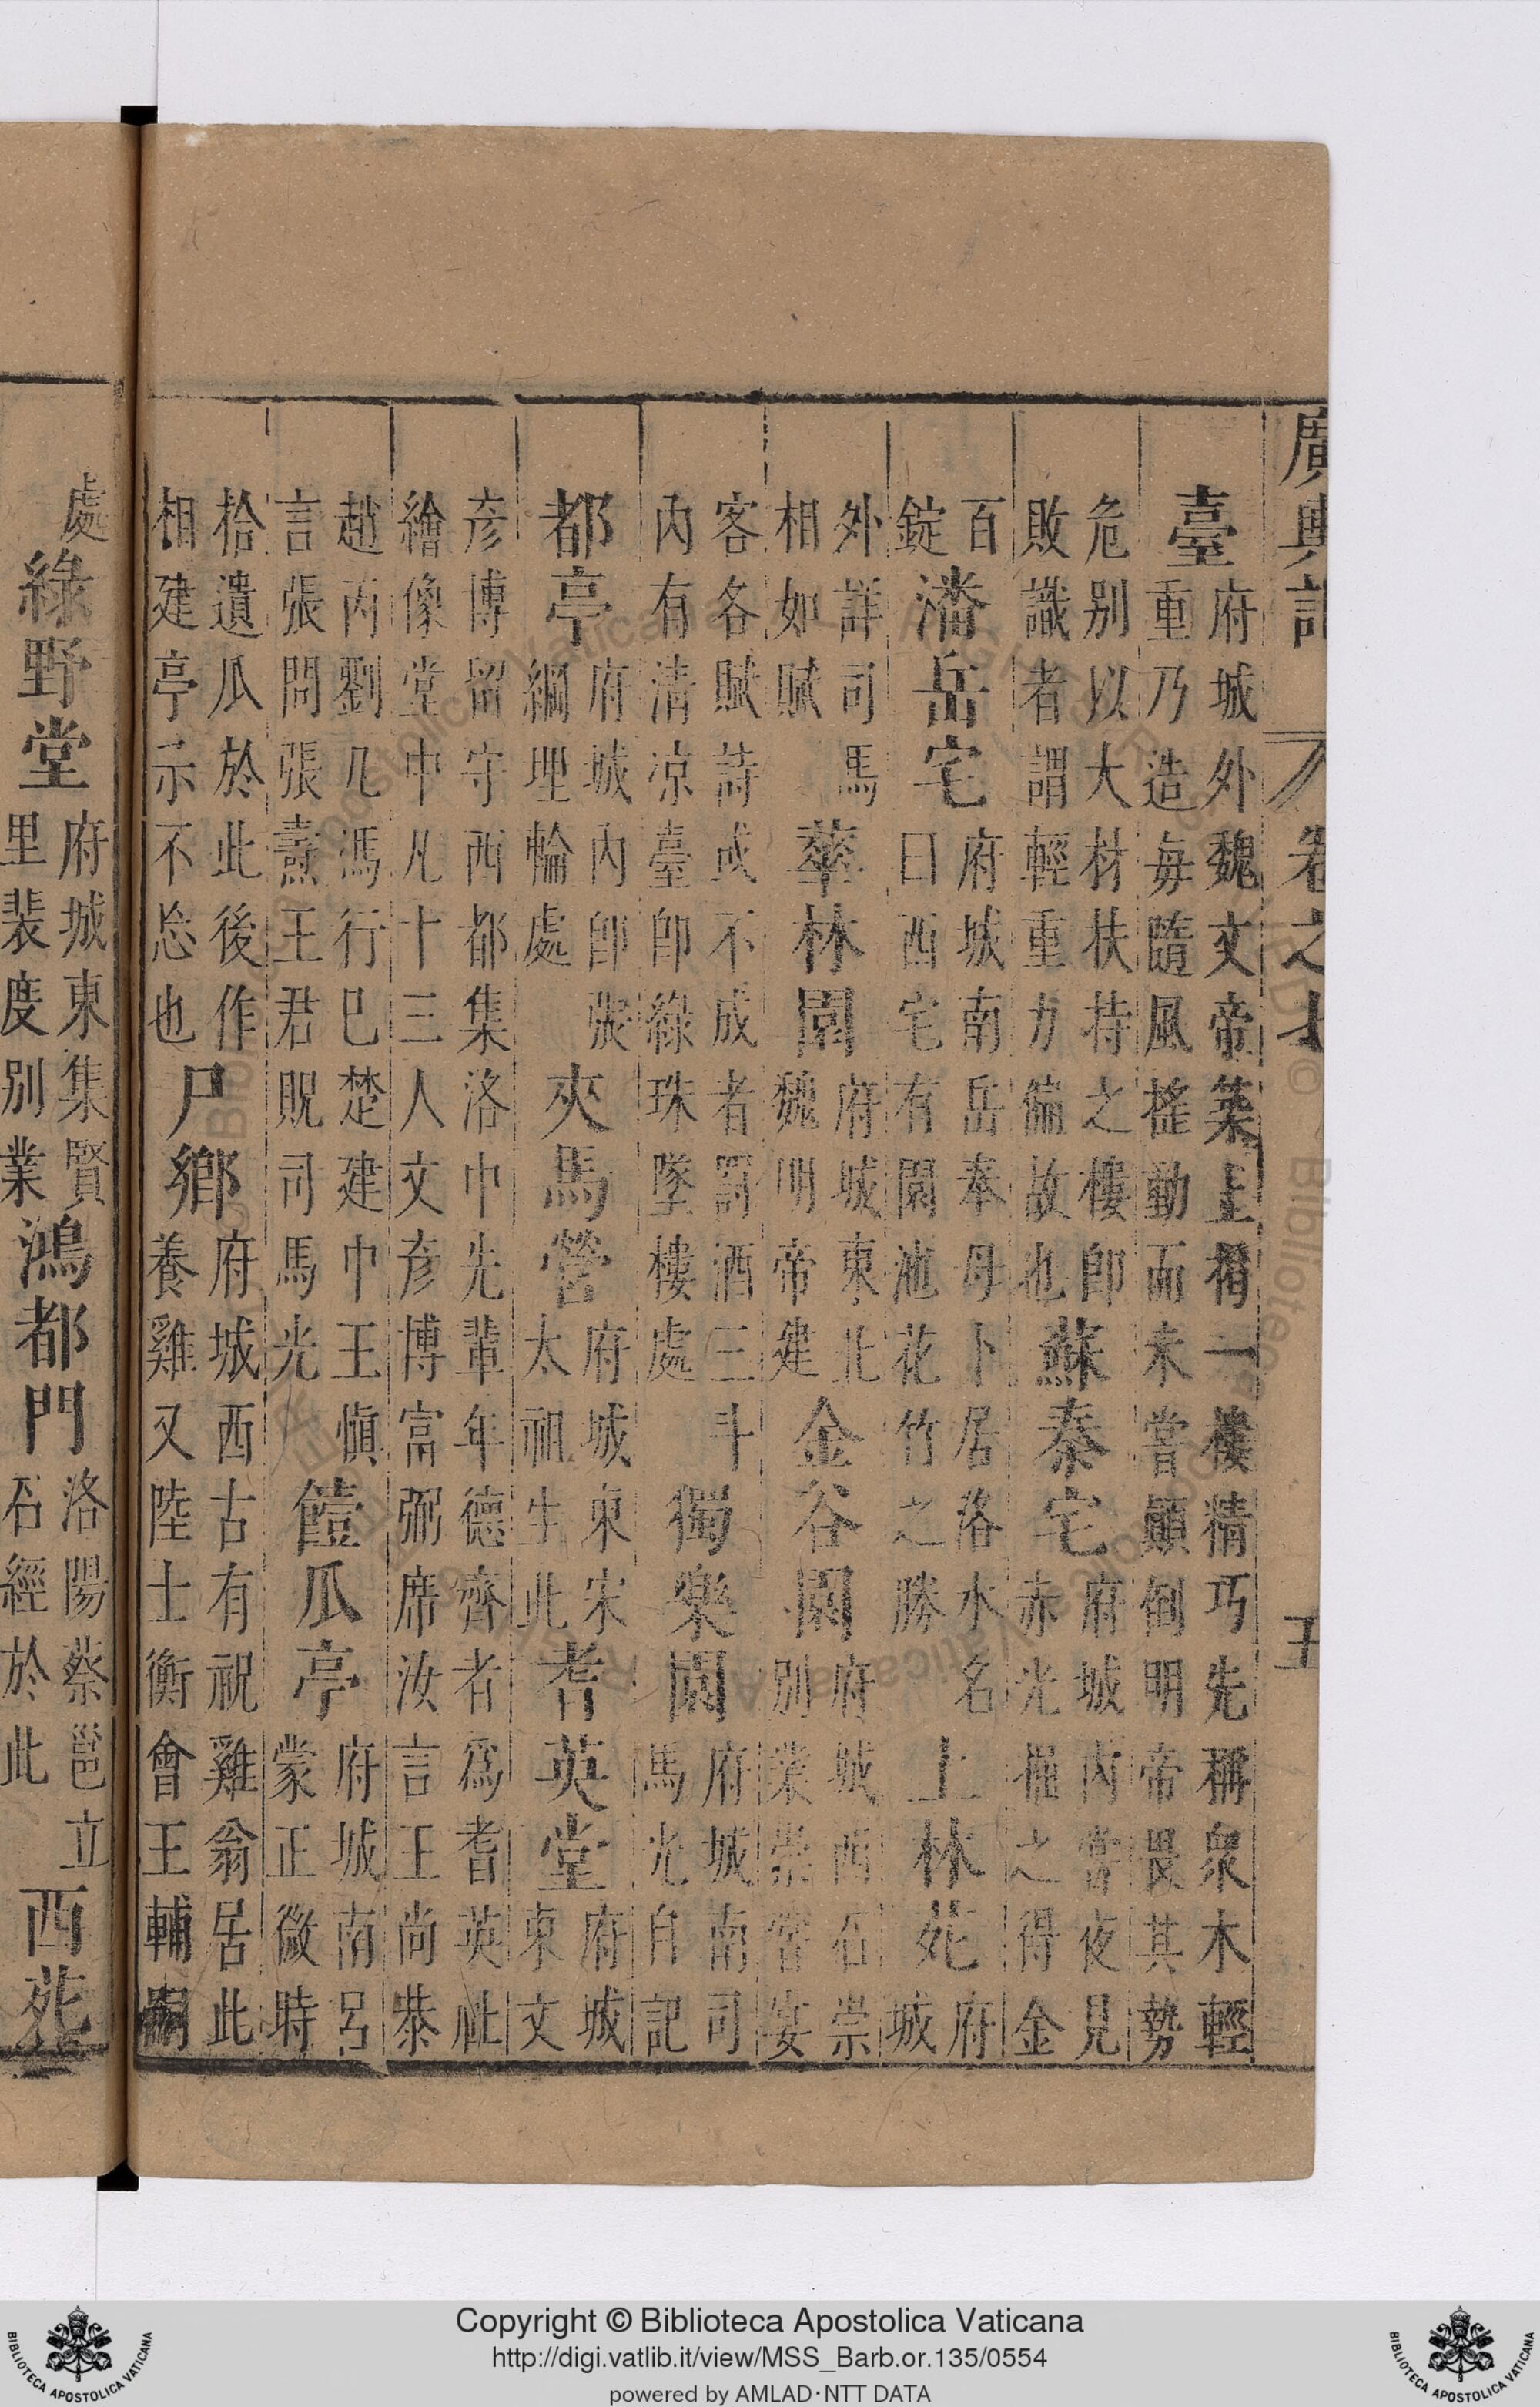 廣輿記 卷之 五
臺 府城外魏文帝築上搆一樓精巧先稱衆木輕
重乃造每隨風搖動而未嘗顛倒明帝畏其勢
危別以大材扶持之樓即
敗識者謂輕重力偏故也 蘇秦宅 府城內嘗夜見
赤光掘之得金
百
錠 潘岳宅 府城南岳奉母卜居洛水名
曰西宅有園池花竹之勝 上林苑 府
城
外詳司馬
相如賦 華林園 府城東北
魏明帝建 金谷園 府城西石崇
別業崇嘗宴
客各賦詩或不成者罰酒三斗
內有清凉臺即綠珠墜樓處 獨樂園 府城南司
馬光自記
都亭 府城內即張
綱埋輪處 夾馬營 府城東宋
太祖生此 耆英堂 府城
東文
彥博留守西都集洛中先輩年德齊者爲耆英社
繪像堂中凡十三人文彥博富弼席汝言王尚恭
趙丙劉几馮行巳楚建中王慎
言張問張燾王君貺司馬光 饐瓜亭 府城南呂
蒙正微時
拾遺瓜於此後作
相建亭示不忘也 尸鄉 府城西古有祝雞翁居此
養雞又陸士衡會王輔嗣
處 綠野堂 府城東集賢
里裴度別業 鴻都門 洛陽蔡邕立
石經於此 西苑
Copyright © Biblioteca Apostolica Vaticana
http://digi.vatlib.it/view/MSS_Barb.or.135/0554
powered by AMLAD·NTT DATA
BIBLIOTECA APOSTOLICA VATICANA
BIBLIOTECA APOSTOLICA VATICANA